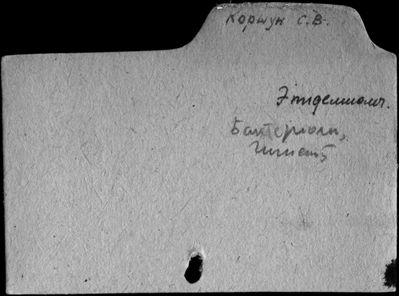 Коршун С.В.
Эпидемиолог.
Бактериолог,
Гигиенист